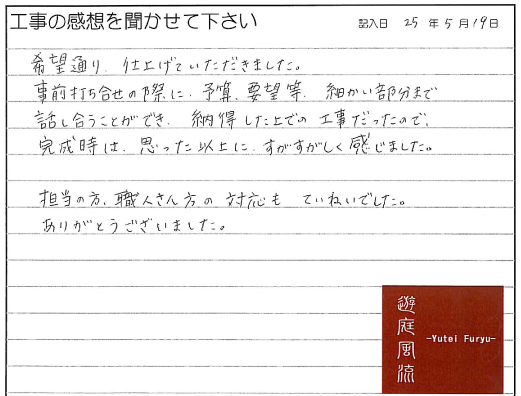 工事の感想を聞かせて下さい
記入日 25 年 5 月 19 日
希望通り、仕上げていただきました。
事前打ち合せの際に、予算、要望等、細かい部分まで
話し合うことができ、納得した上での工事だったので、
完成時は、思った以上に、すがすがしく感じました。
担当の方、職人さん方の対応も ていねいでした。
ありがとうございました。
遊庭風流
-Yutei Furyu-